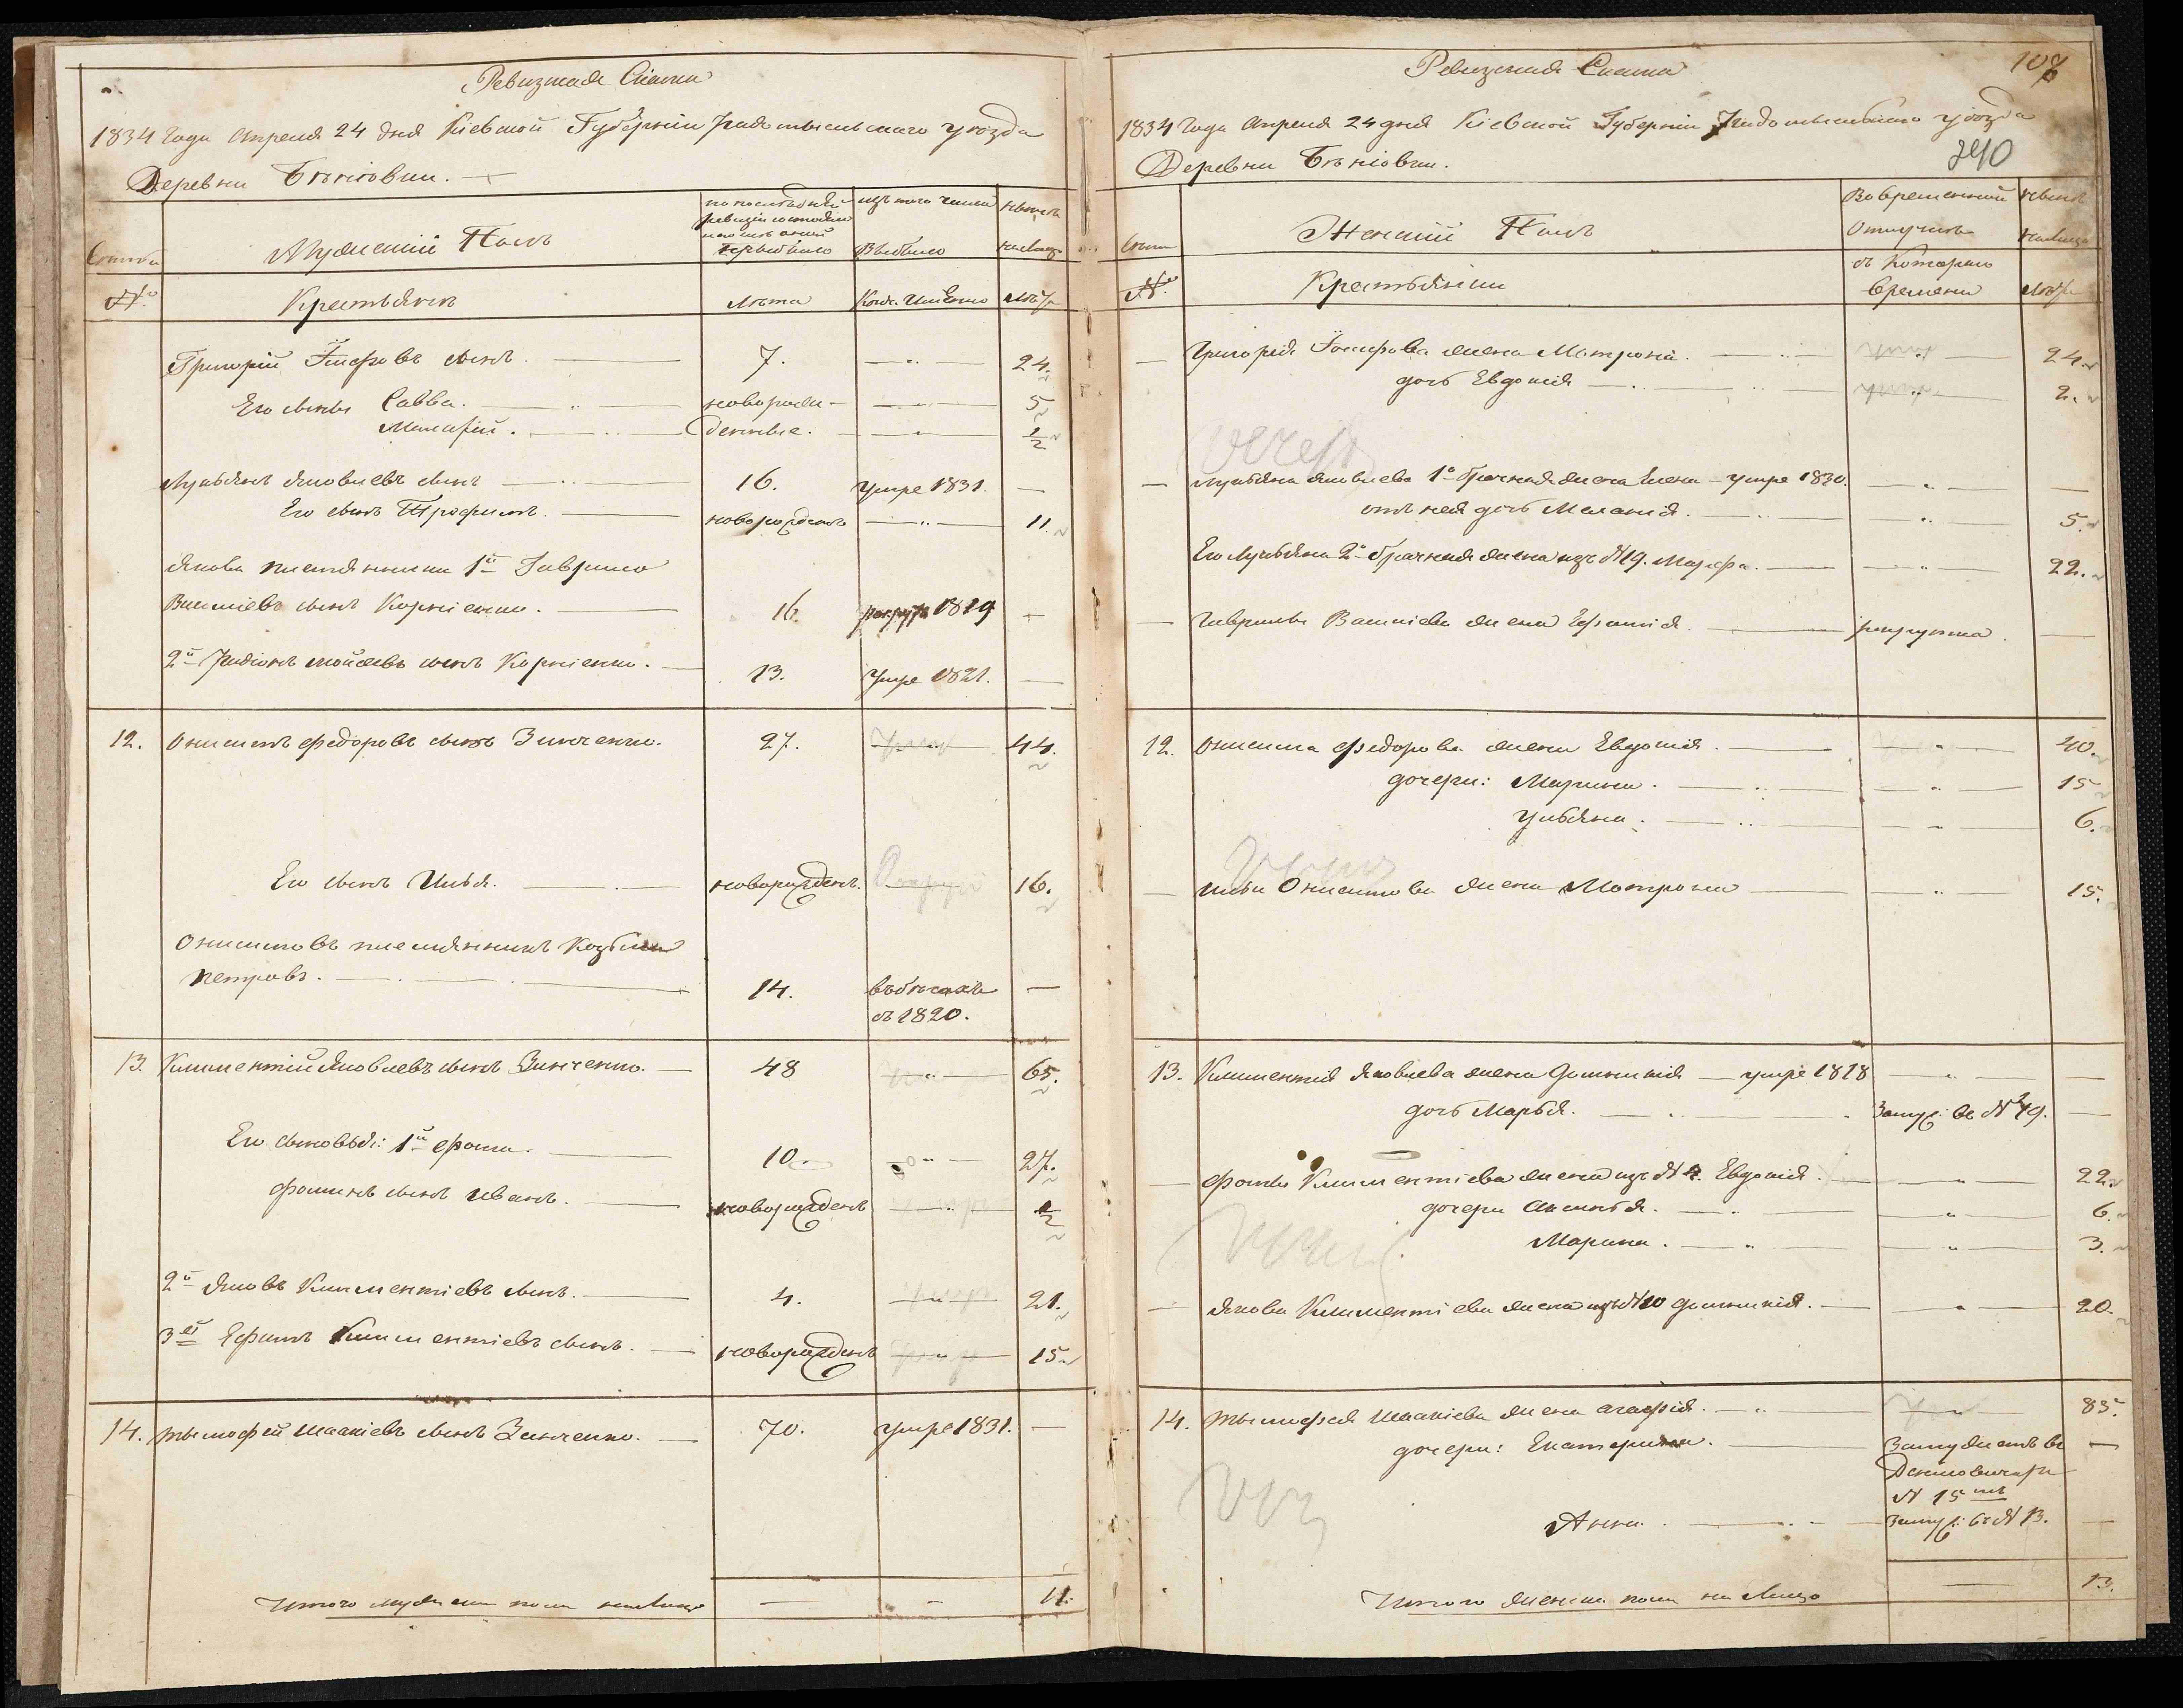 Ревизская Сказка
1834 Года Апреля 24 дня Кіевской Губерніи Радомысльскаго уѣзда
Деревни
Семьи
Мужеский Полъ
по последней ревизіи состояло
изъ того числа Выбыло
нынѣ налицо
№
Крестьянъ
Лѣта
Когда Именно
Лѣта
Григорій Іосифовъ сынъ. 7. — " — 24.
Его сынъ Савва. новорож- — " — 5
Макарій. денные. — " — 1/2
Лукьянъ Яковлевъ сынъ 16. умре 1831. —
Его сынъ Трофимъ. новорожденъ — " — 11.
Якова племянники 1й Гаврило
Васильевъ сынъ Корніенко. 16. рекрутъ 1829 —
2й Радіонъ Мойсѣевъ сынъ Корніенко. 13. умре 1821. —
12. Онисимъ Федоровъ сынъ Зинченко. 27. — 44.
Его сынъ Илья. новорожденъ. — 16.
Онисимовъ племянникъ Козьма
Петровъ. 14. въ бегахъ —
съ 1820.
13. Климентій Яковлевъ сынъ Зинченко. 48 — " — 65.
Его сыновья: 1й Фома. 10. — " — 27.
Фоминъ сынъ Иванъ. новорожденъ — " — 1/2
2й Яковъ Климентіевъ сынъ. 4. — " — 21.
3ій Ефимъ Климентіевъ сынъ. новорожденъ — " — 15.
14. Тымофей Исакіевъ сынъ Зинченко. 70. умре 1831. —
Итого мужеска пола налицо — — 11.
Ревизская Сказка
107
1834 Года Апреля 24 дня Кіевской Губерніи Радомысльскаго уѣзда
240
Деревни
Семьи
Женский Полъ
Во временной Отлучкѣ
нынѣ налицо
№.
Крестьянки
съ Котораго времени
Лѣта
— Григорія Іосифова жена Матрона. — " — 24.
дочь Евдокія — " — 2.
— Лукьяна Яковлева 1о брачная жена Елена — умре 1830. — " — —
отъ нея дочь Меланія. " 5.
Его Лукьяна 2о брачная жена изъ №19. Марфа. — " — 22.
— Гаврилы Васильева жена Ефимія. рекрутка. —
12. Онисима Федорова жена Евдокія. — " — 40.
дочери: Марина. — " — 15
Ульяна. — " — 6.
— Ильи Онисимова жена Матрона — " — 15.
13. Климентія Яковлева жена Домникія — умре 1818 — " — —
дочь Марья. Замуж: въ № 19. —
— Фомы Климентіева жена изъ № 4. Евдокія. — " — 22.
дочери Аксинья. — " — 6.
Марина. — " — 3.
— Якова Климентіева жена изъ №10 Домникія. — " — 20.
14. Тымофея Исакіева жена Агафія. — " — 85.
дочери: Екатерина. Замужемъ въ —
№ 15мъ
Анна. Замуж: въ № 13. —
Итого женска пола на Лицо — 13.